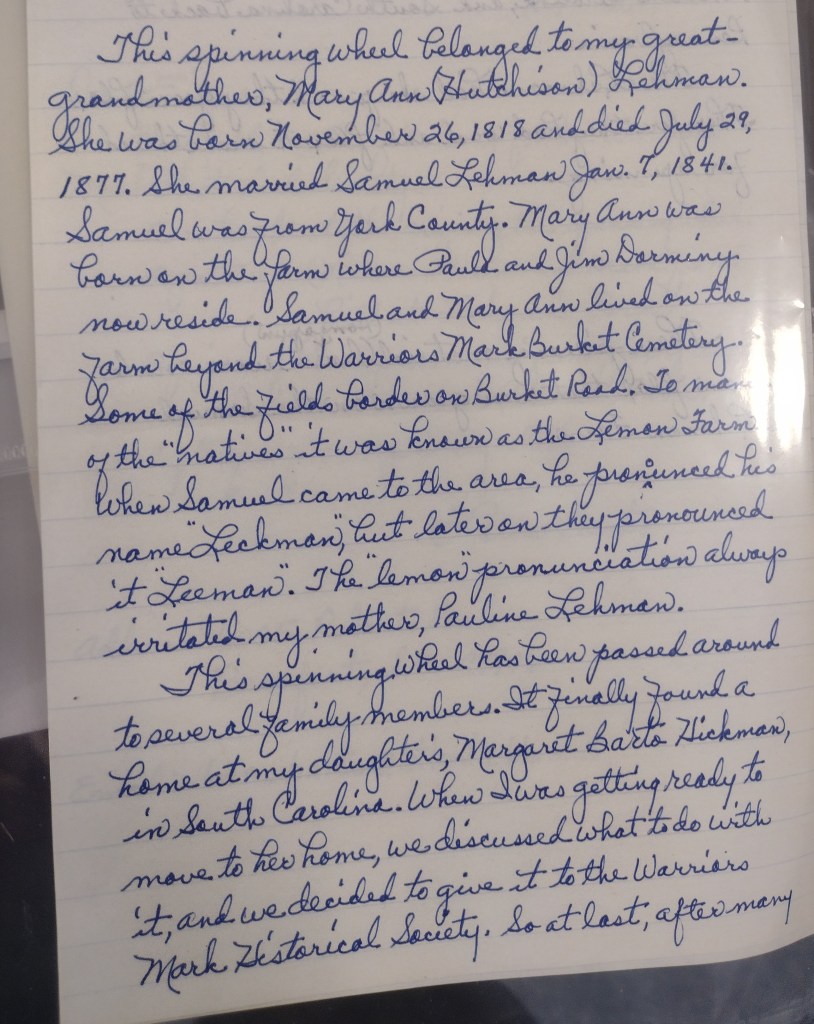 This spinning wheel belonged to my great-
grandmother, Mary Ann (Hutchison) Lehman.
She was born November 26, 1818 and died July 29,
1877. She married Samuel Lehman Jan. 7, 1841.
Samuel was from York County. Mary Ann was
born on the farm where Paula and Jim Dorminy
now reside. Samuel and Mary Ann lived on the
farm beyond the Warriors Mark Burket Cemetery.
Some of the fields border on Burket Road. To many
of the "natives" it was known as the Lemon Farm
When Samuel came to the area, he pronounced his
name "Leckman", but later on they pronounced
it "Leeman". The "lemon" pronunciation always
irritated my mother, Pauline Lehman.
This spinning wheel has been passed around
to several family members. It finally found a
home at my daughter's, Margaret Barto Hickman,
in South Carolina. When I was getting ready to
move to her home, we discussed what to do with
it, and we decided to give it to the Warriors
Mark Historical Society. So at last, after many